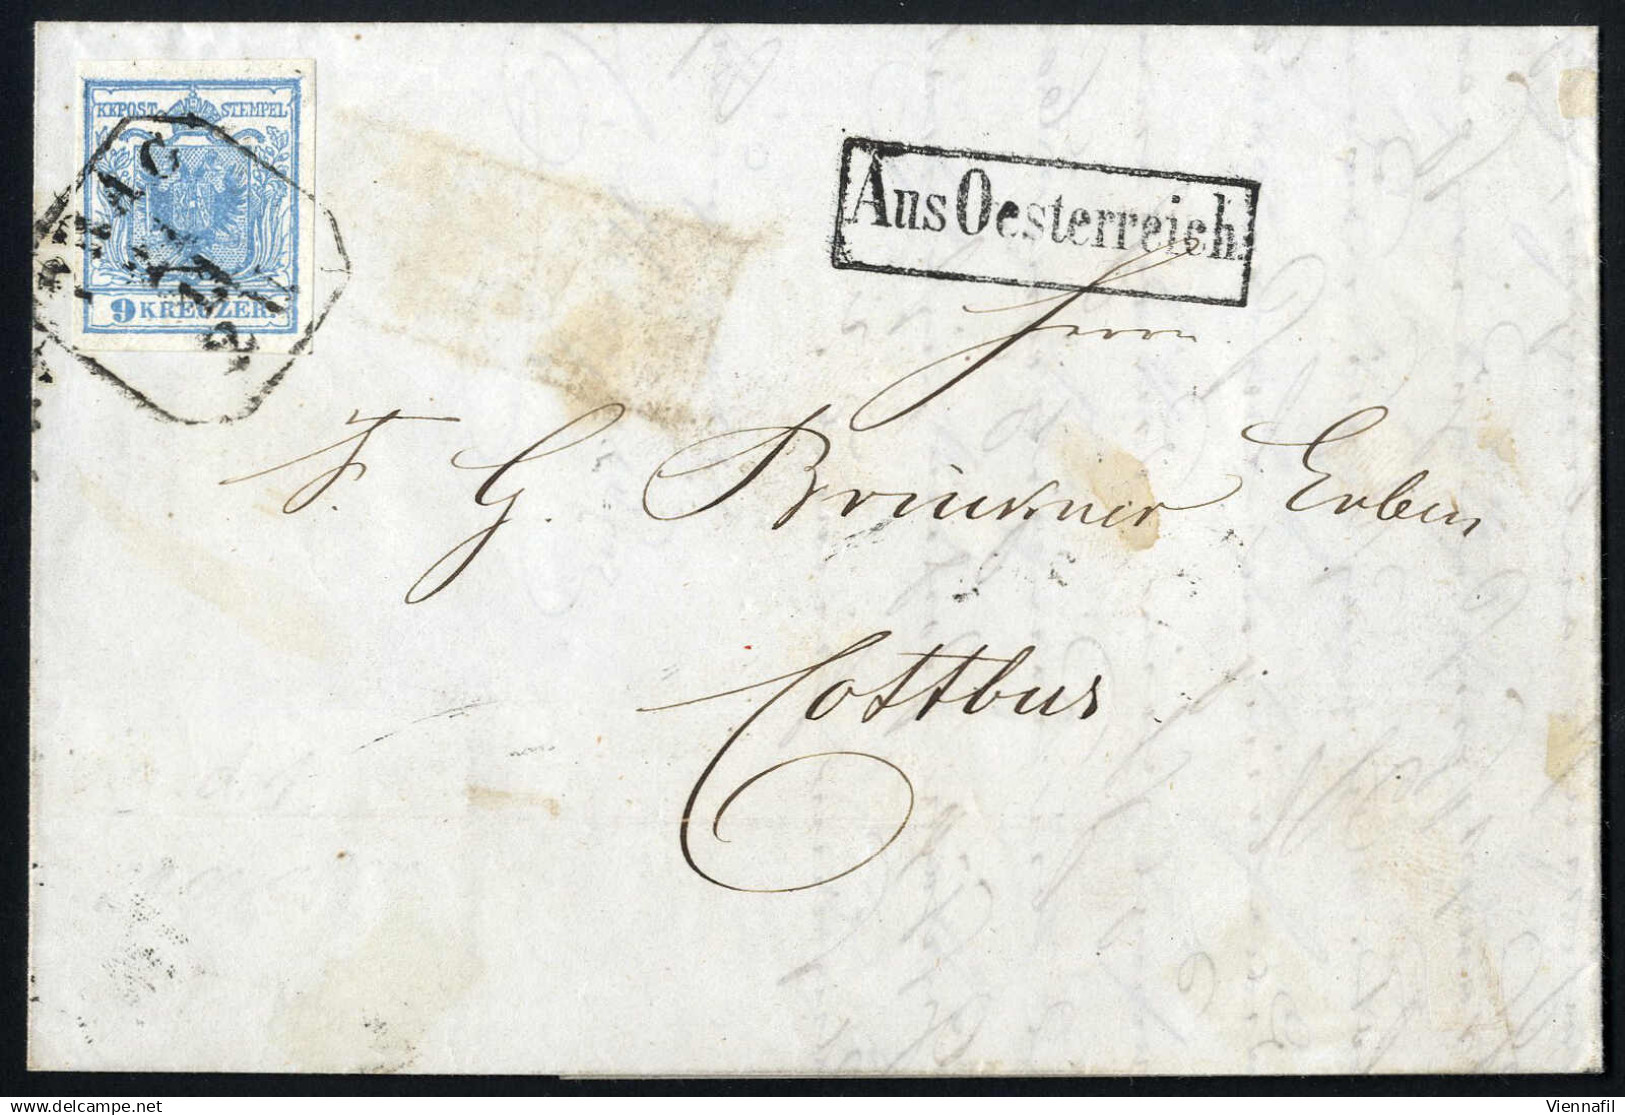 KKPOST STEMPEL
PRAG
9 KREUZER.
Aus Oesterreich.
Herrn
F. G. Bruckner Erben
Cottbus
delcampe.net
Viennafil